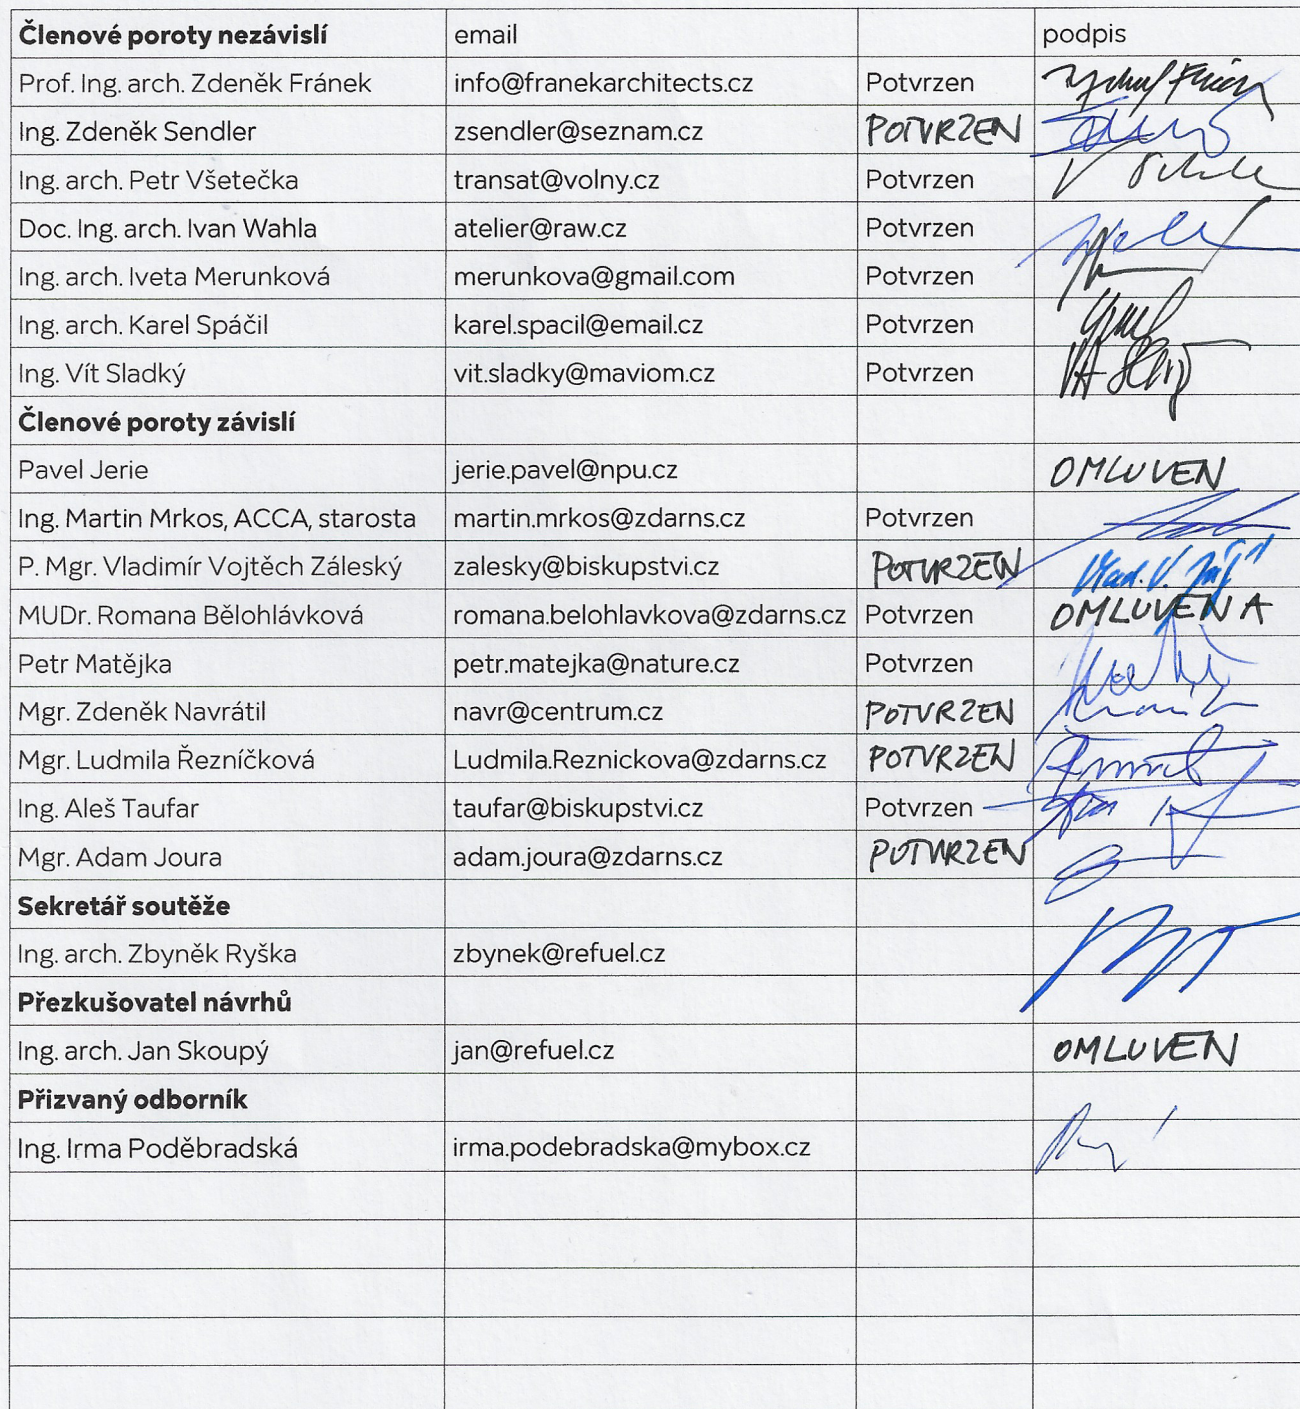 Členové poroty nezávislí email podpis
Prof. Ing. arch. Zdeněk Fránek info@franekarchitects.cz Potvrzen
Ing. Zdeněk Sendler zsendler@seznam.cz POTVRZEN
Ing. arch. Petr Všetečka transat@volny.cz Potvrzen
Doc. Ing. arch. Ivan Wahla atelier@raw.cz Potvrzen
Ing. arch. Iveta Merunková merunkova@gmail.com Potvrzen
Ing. arch. Karel Spáčil karel.spacil@email.cz Potvrzen
Ing. Vít Sladký vit.sladky@maviom.cz Potvrzen
Členové poroty závislí
Pavel Jerie jerie.pavel@npu.cz OMLUVEN
Ing. Martin Mrkos, ACCA, starosta martin.mrkos@zdarns.cz Potvrzen
P. Mgr. Vladimír Vojtěch Záleský zalesky@biskupstvi.cz POTVRZEN
MUDr. Romana Bělohlávková romana.belohlavkova@zdarns.cz Potvrzen OMLUVENA
Petr Matějka petr.matejka@nature.cz Potvrzen
Mgr. Zdeněk Navrátil navr@centrum.cz POTVRZEN
Mgr. Ludmila Řezníčková Ludmila.Reznickova@zdarns.cz POTVRZEN
Ing. Aleš Taufar taufar@biskupstvi.cz Potvrzen
Mgr. Adam Joura adam.joura@zdarns.cz POTVRZEN
Sekretář soutěže
Ing. arch. Zbyněk Ryška zbynek@refuel.cz
Přezkušovatel návrhů
Ing. arch. Jan Skoupý jan@refuel.cz OMLUVEN
Přizvaný odborník
Ing. Irma Poděbradská irma.podebradska@mybox.cz